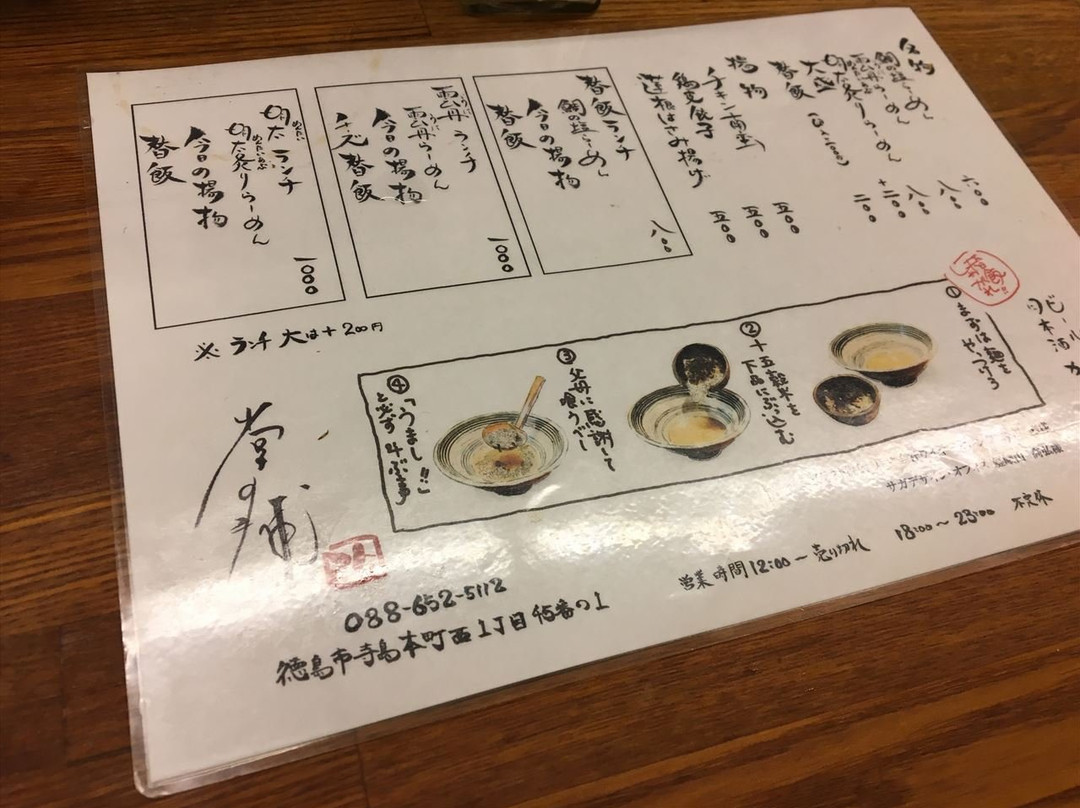 名物
鯛の塩らーめん
雲丹らーめん
明太炙りらーめん
大盛
替飯
六〇〇
八〇〇
八〇〇
+二〇〇
二〇〇
揚物
チキン南蛮
鶏皮餃子
蓮根はさみ揚げ
五〇〇
五〇〇
五〇〇
替飯ランチ
鯛の塩らーめん
今日の揚物
替飯
八〇〇
雲丹ランチ
うに
雲丹らーめん
うに
今日の揚物
チーズ替飯
一〇〇〇
明太ランチ
めんたい
明太炙りらーめん
めんたいあぶ
今日の揚物
替飯
一〇〇〇
※ランチ大は+200円
ビール
日本酒
① まずは麺を
やっつけろ
② 十五穀米を
下品にぶっ込む
③ 父母に感謝して
喰うべし
④ 「うまし!!」
と必ず叫ぶ事
営業時間12:00―売り切れ 18:00〜23:00 不定休
088-652-5112
徳島市寺島本町西1丁目45番の1